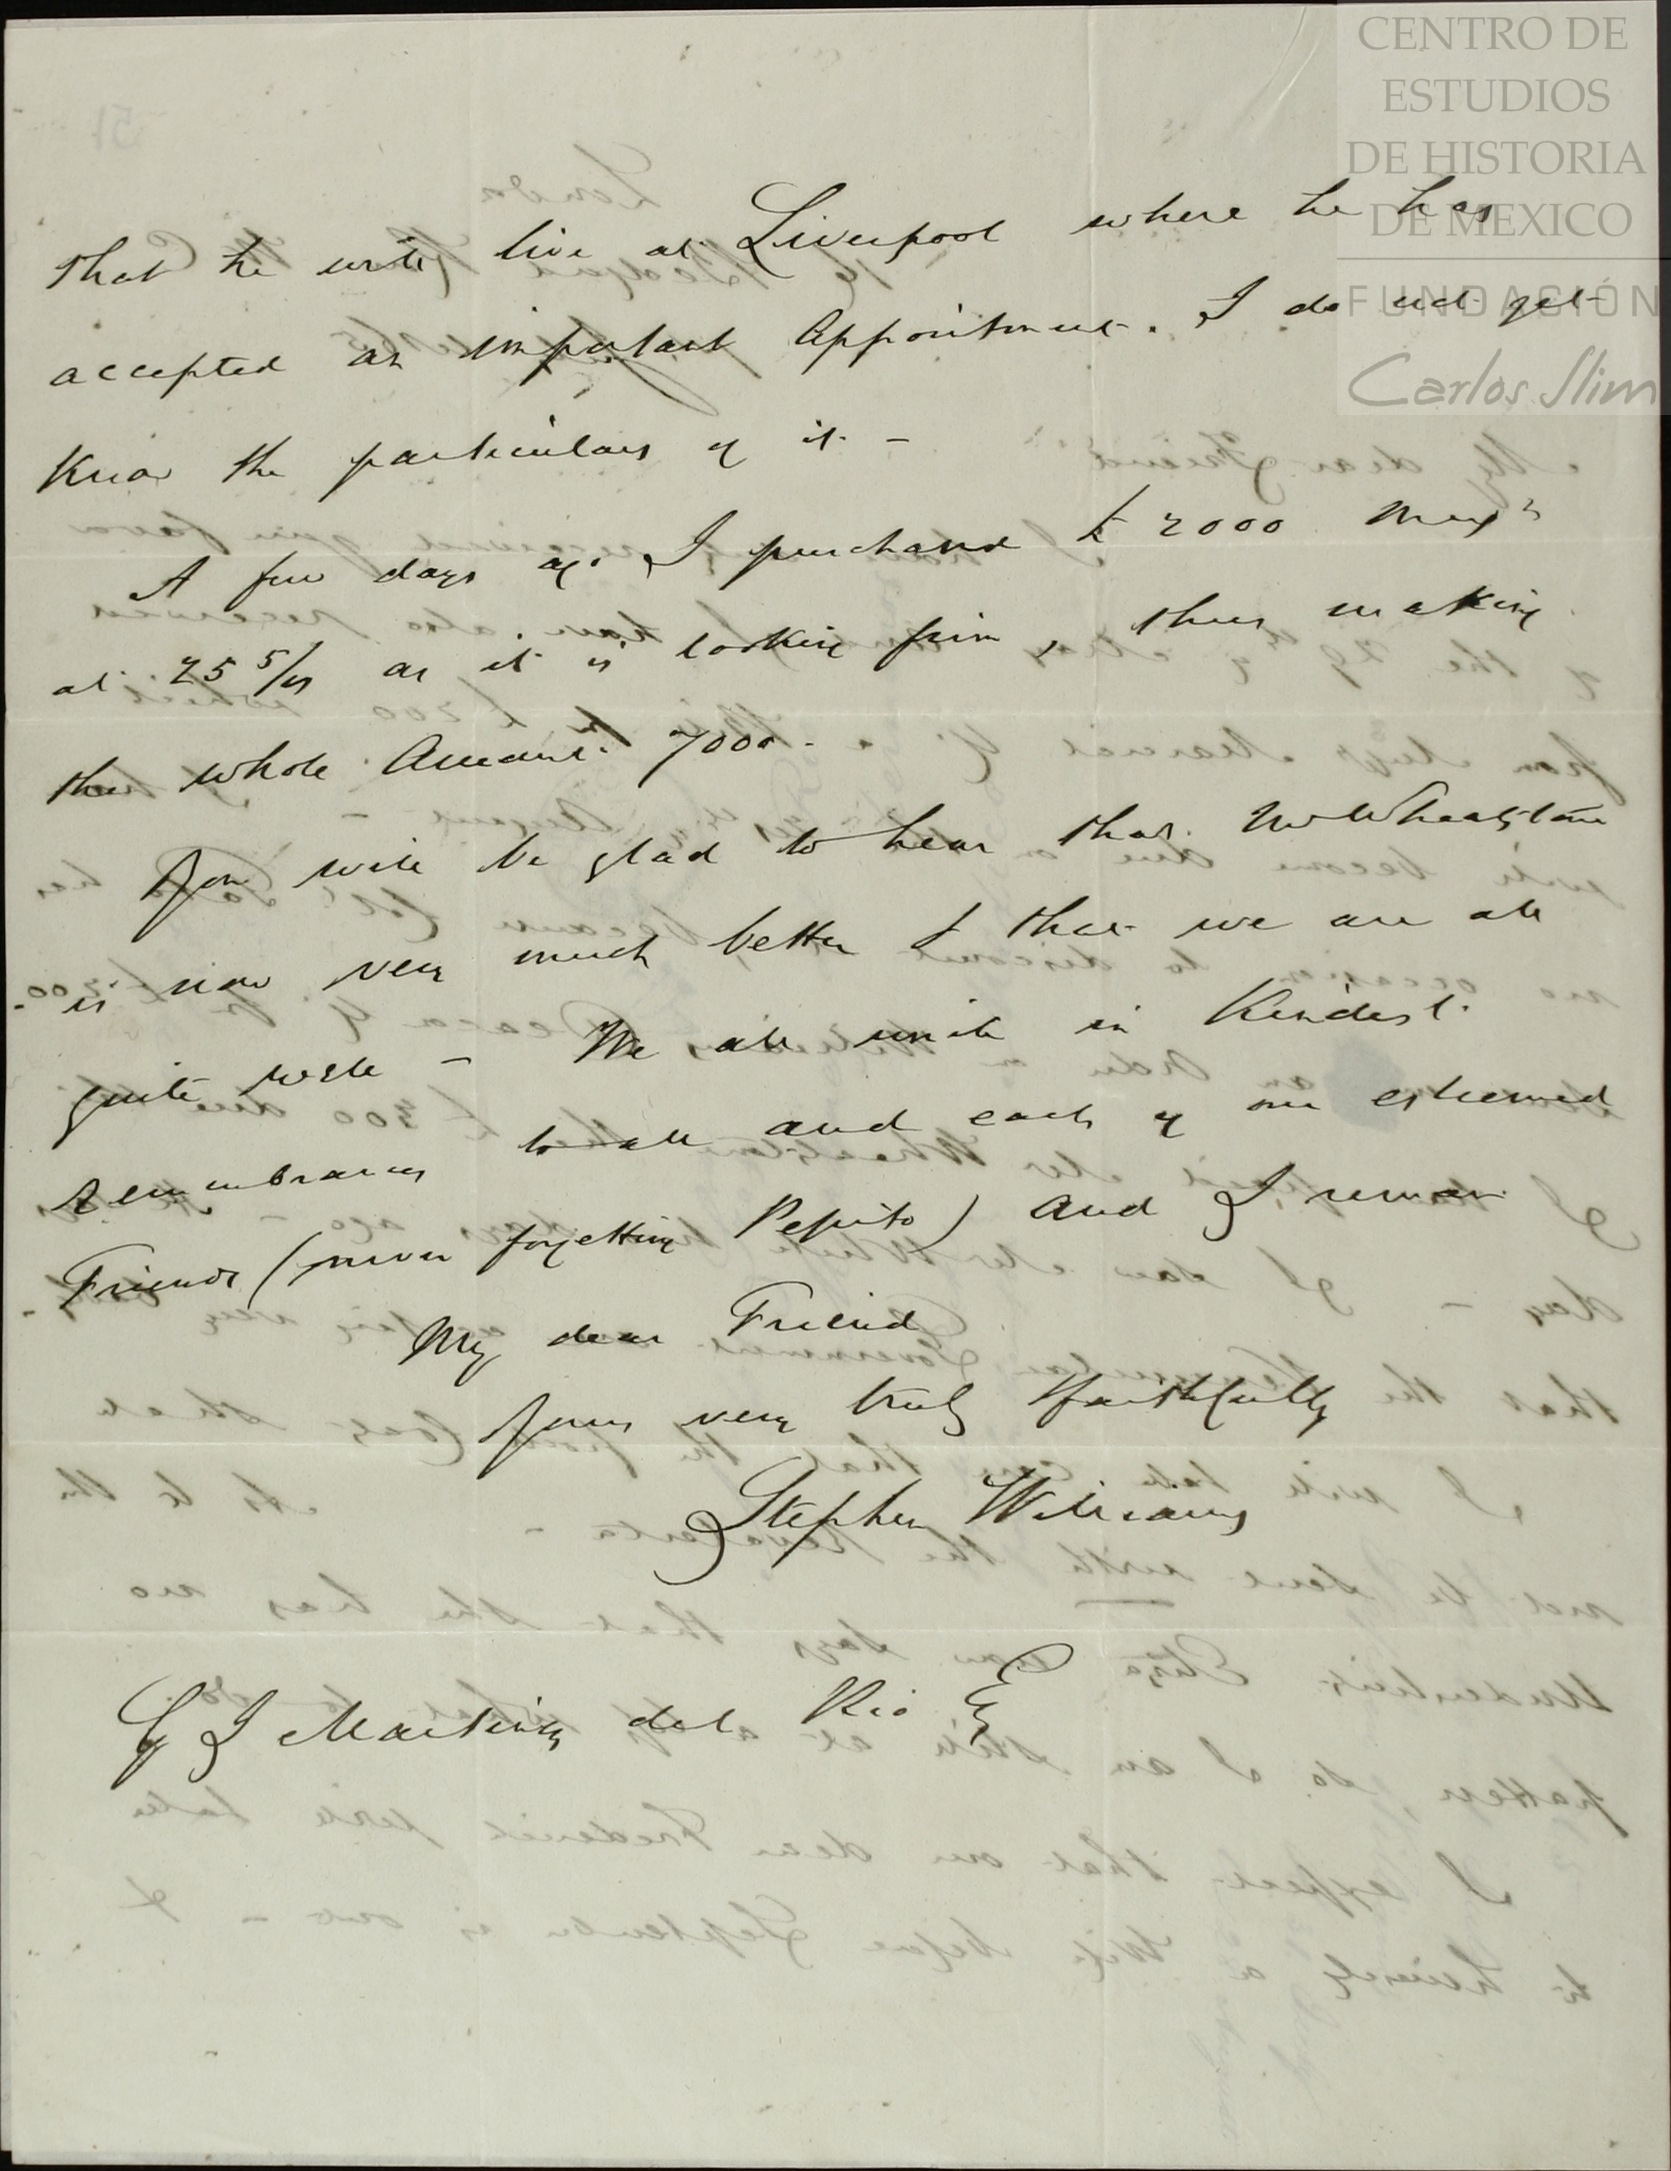 CENTRO DE
ESTUDIOS
DE HISTORIA
DE MEXICO
FUNDACIÓN
Carlos Slim
that he will live at Liverpool where he has
accepted an important appointment. I do not yet
know the particulars of it –
A few days ago I purchased £2000 Mexns
at 25 5/8 as it is looking firm, thus making
the whole Amount 7000 –
You will be glad to hear that Mr Wheatstone
is now very much better & that we are all
quite well – We all unite in Kindest
remembrances to all and each of our esteemed
Friends (never forgetting Pepito) and I remain
My dear Friend
Yours very truly & faithfully
Stephen Williams
J Martinez del Rio Eq